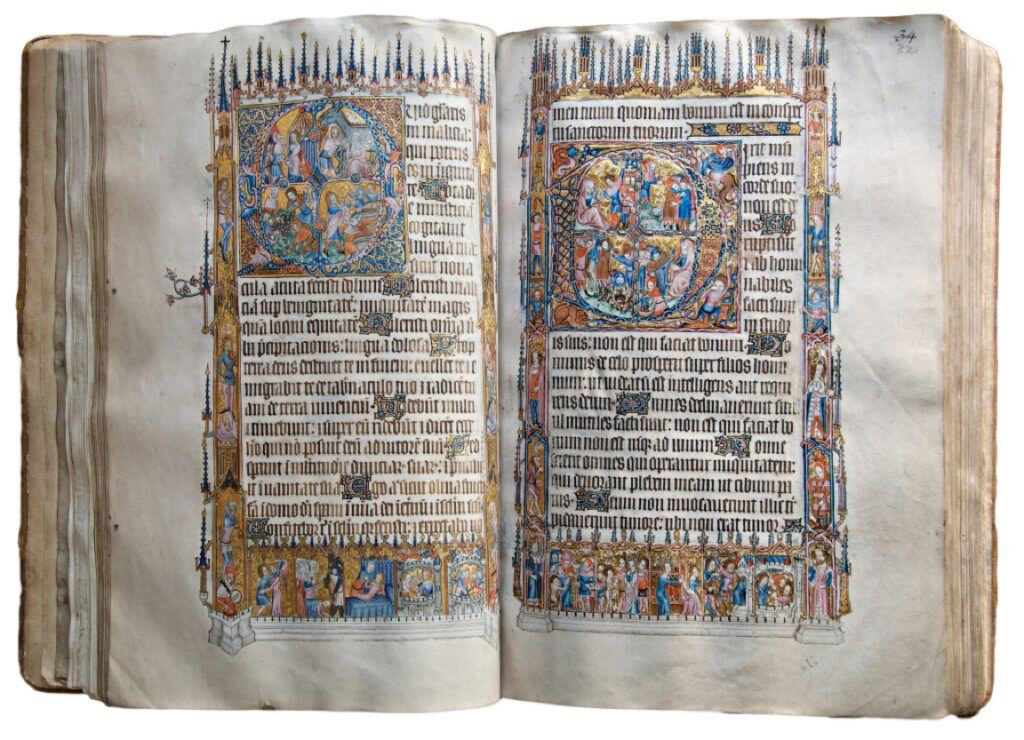 Quid gloriaris
in malicia:
qui potens
es in iniquita
te Tota di
e iniusticiā
cogitauit
lingua tua:
sicut noua
cula acuta fecisti dolum Dilexisti mali
ciā sup benignitatē: iniquitatē magis
quā loqui equitatē Dilexisti omīa
ba p̄cipitacionis: lingua dolosa Prop
terea deus destruet te in finem: euellet te et
emigrabit te de tab̄naculo tuo et radicē tu
am de terra uiuenciū Videbūt iusti
et timebunt: et super eū ridebūt et dicēt ecce
homo qui nō posuit deū adiutorē suū Set
sperauit in diuiciar suar: et p̄ualu
it in uanitate sua Ego autē sicut oliua fructi
fera in domo dei speraui in
34
32
men tuum quoniam bonum est in conspec
tu sanctorum tuorum
Dixit insi
piens in
corde suo:
non est de
us Cor
rupti sunt
et ab homi
nabiles
facti sunt
in studi
is suis: non est qui faciat bonum Do
minus de celo prospexit super filios homi
num: ut uideat si est intelligens aut requi
rens deum Omnes declinauerunt si
mul inutiles facti sunt: non est qui faciat bo
num non est usq ad unum Nonne
scient omnes qui operantur iniquitatem:
qui deuorant plebem meam ut cibum pa
nis Deum non inuocauerunt illic t
repidauerunt timore: ubi non erat timor